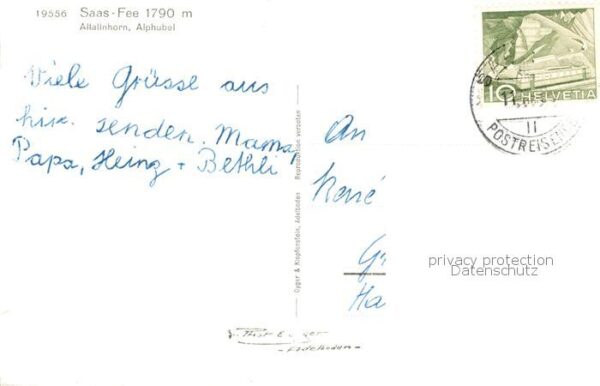 19556 Saas-Fee 1790 m
Allalinhorn, Alphubel
Viele Grüsse aus
hier senden. Mama,
Papa, Heinz + Bethli
Gyger & Klopfenstein, Adelboden Reproduktion verboten
10 HELVETIA
II
POSTREISEN
An
René
G
Ha
privacy protection
Datenschutz
Adelboden